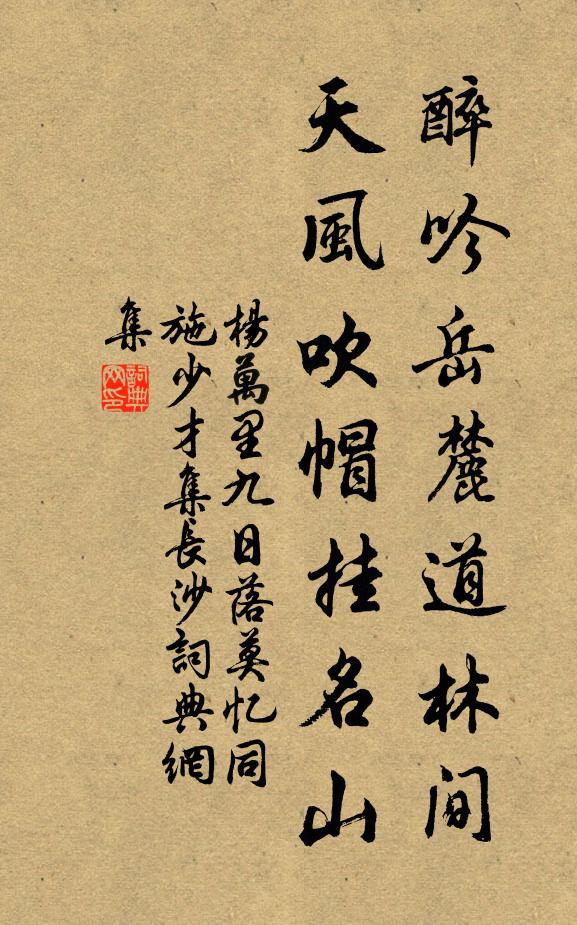 醉吟岳麓道林間
天風吹帽挂名山
楊萬里九日落莫忆同
施少才集長沙詞典網
集
詞典
网印